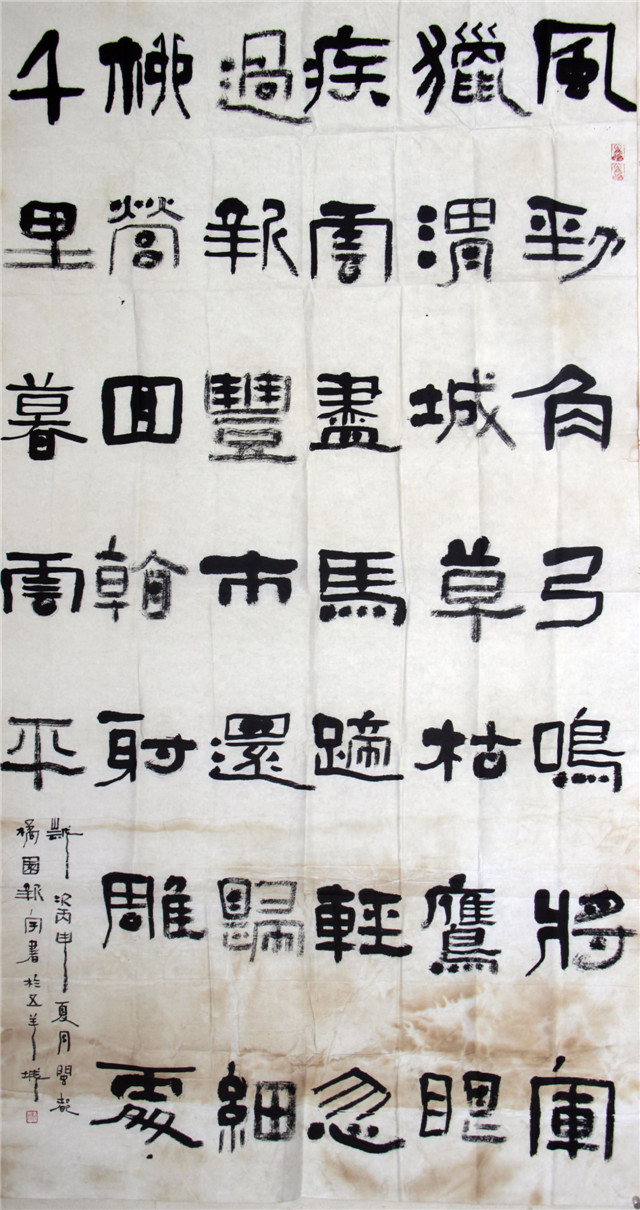 風勁角弓鳴將軍
獵渭城草枯鷹眼
疾雲盡馬蹄輕忽
過新豐市還歸細
柳營回看射雕處
千里暮雲平
歲次丙申夏月閩都
橘園新宇書於五羊城